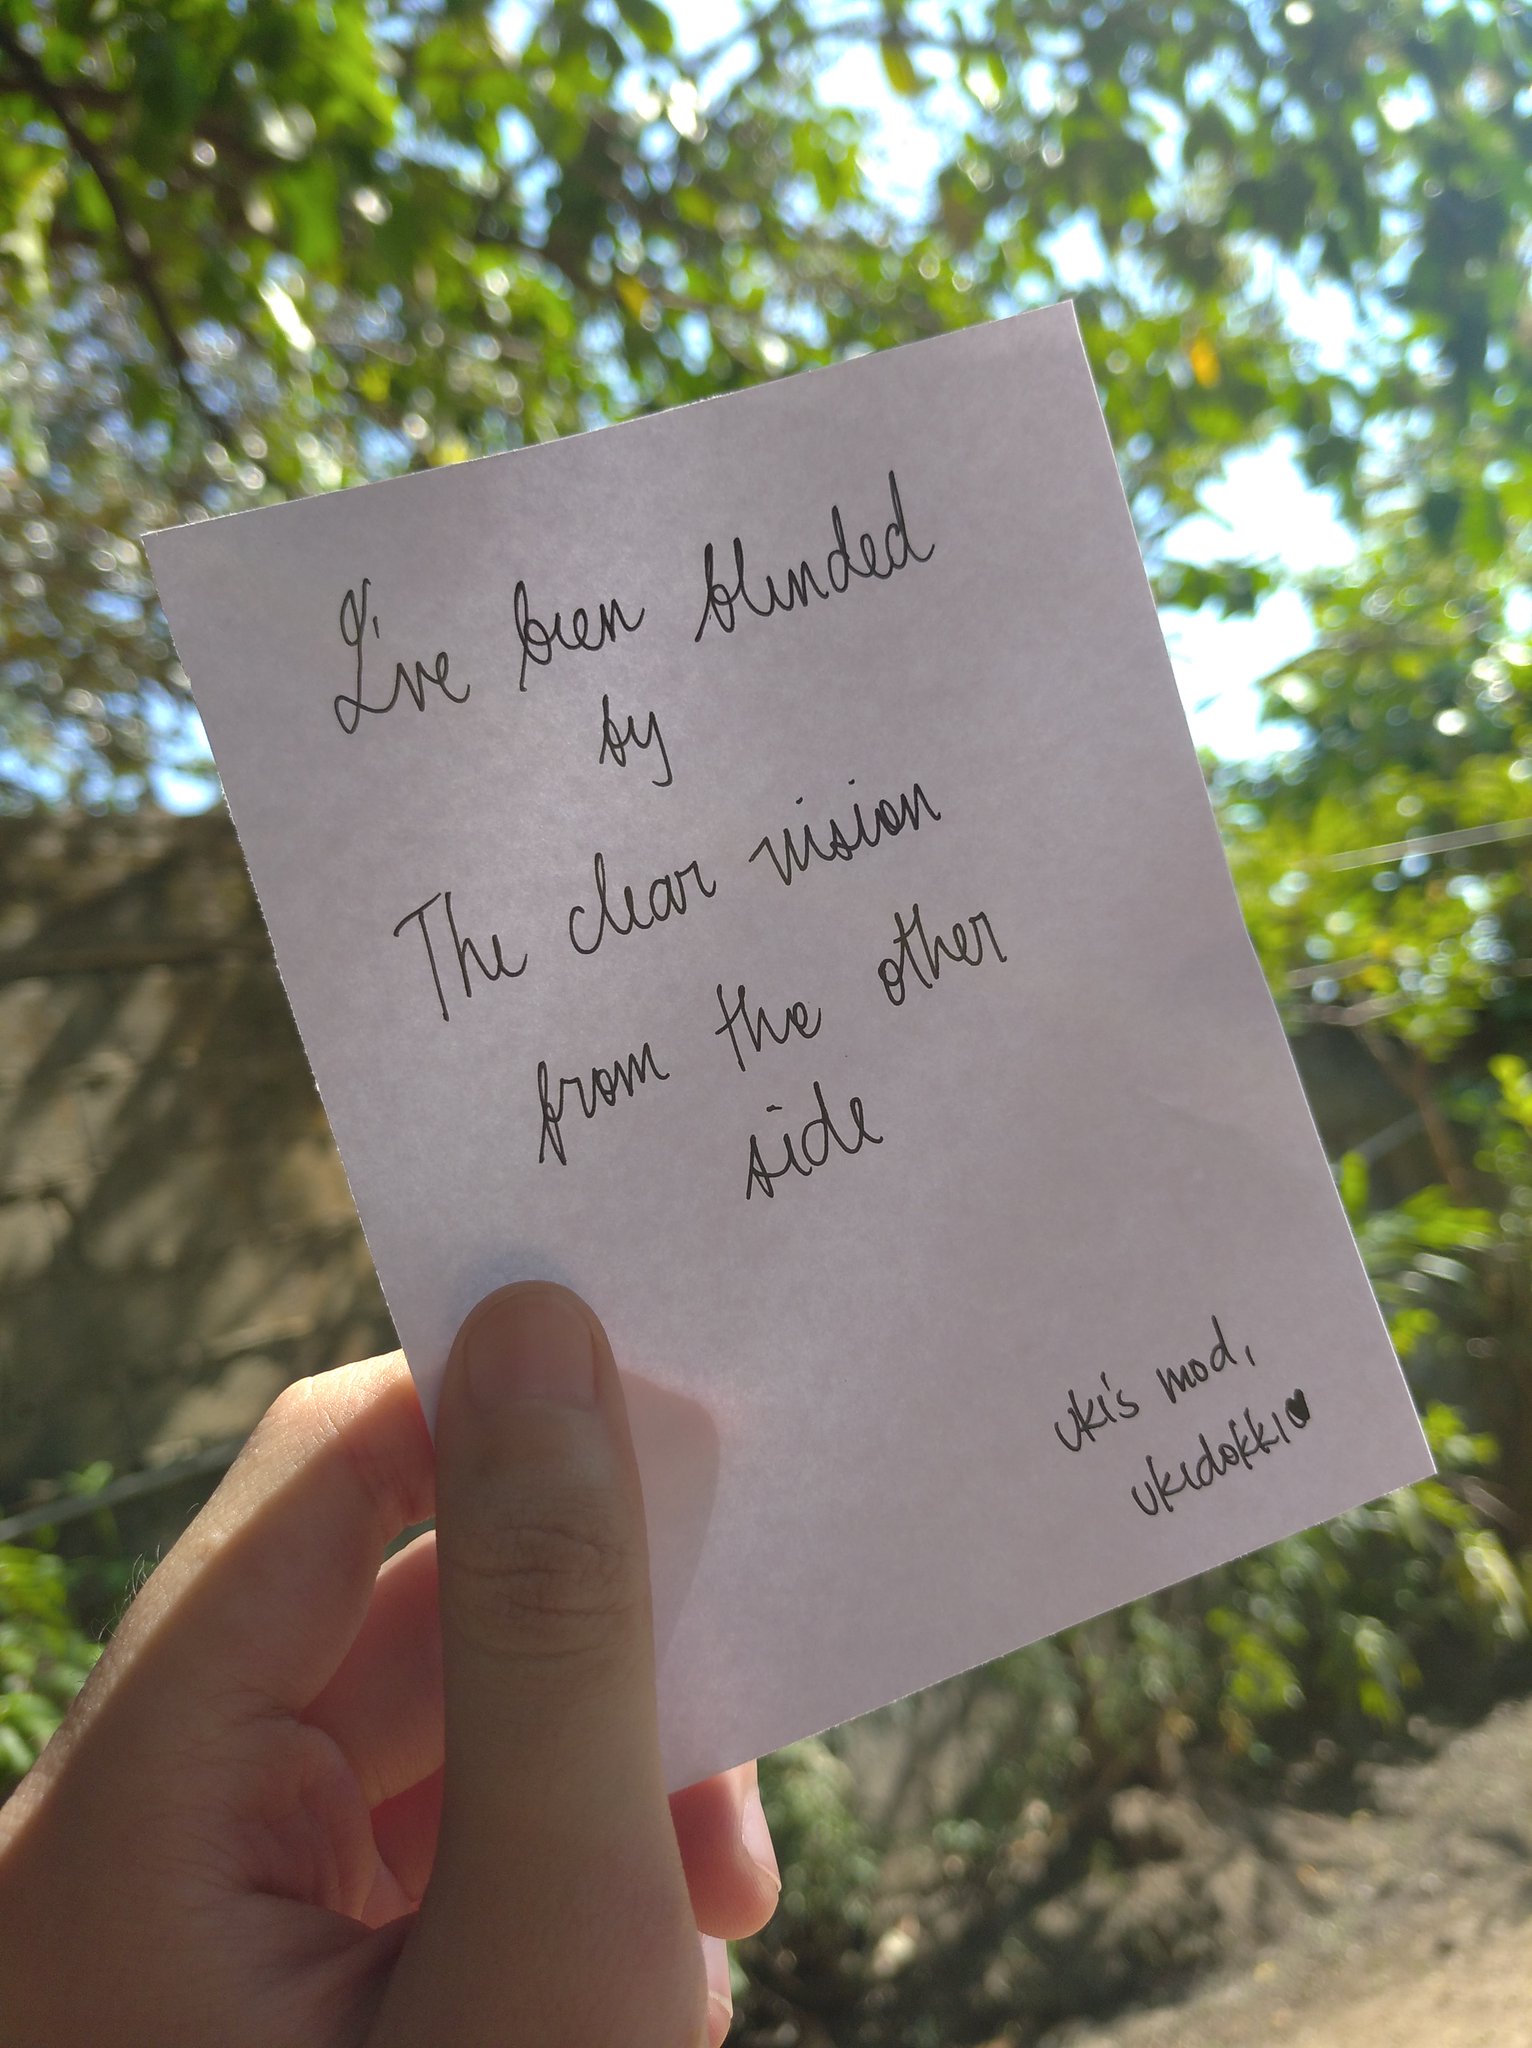 I've been blinded
by
The clear vision
from the other
side
uki's mod,
ukidokki♥